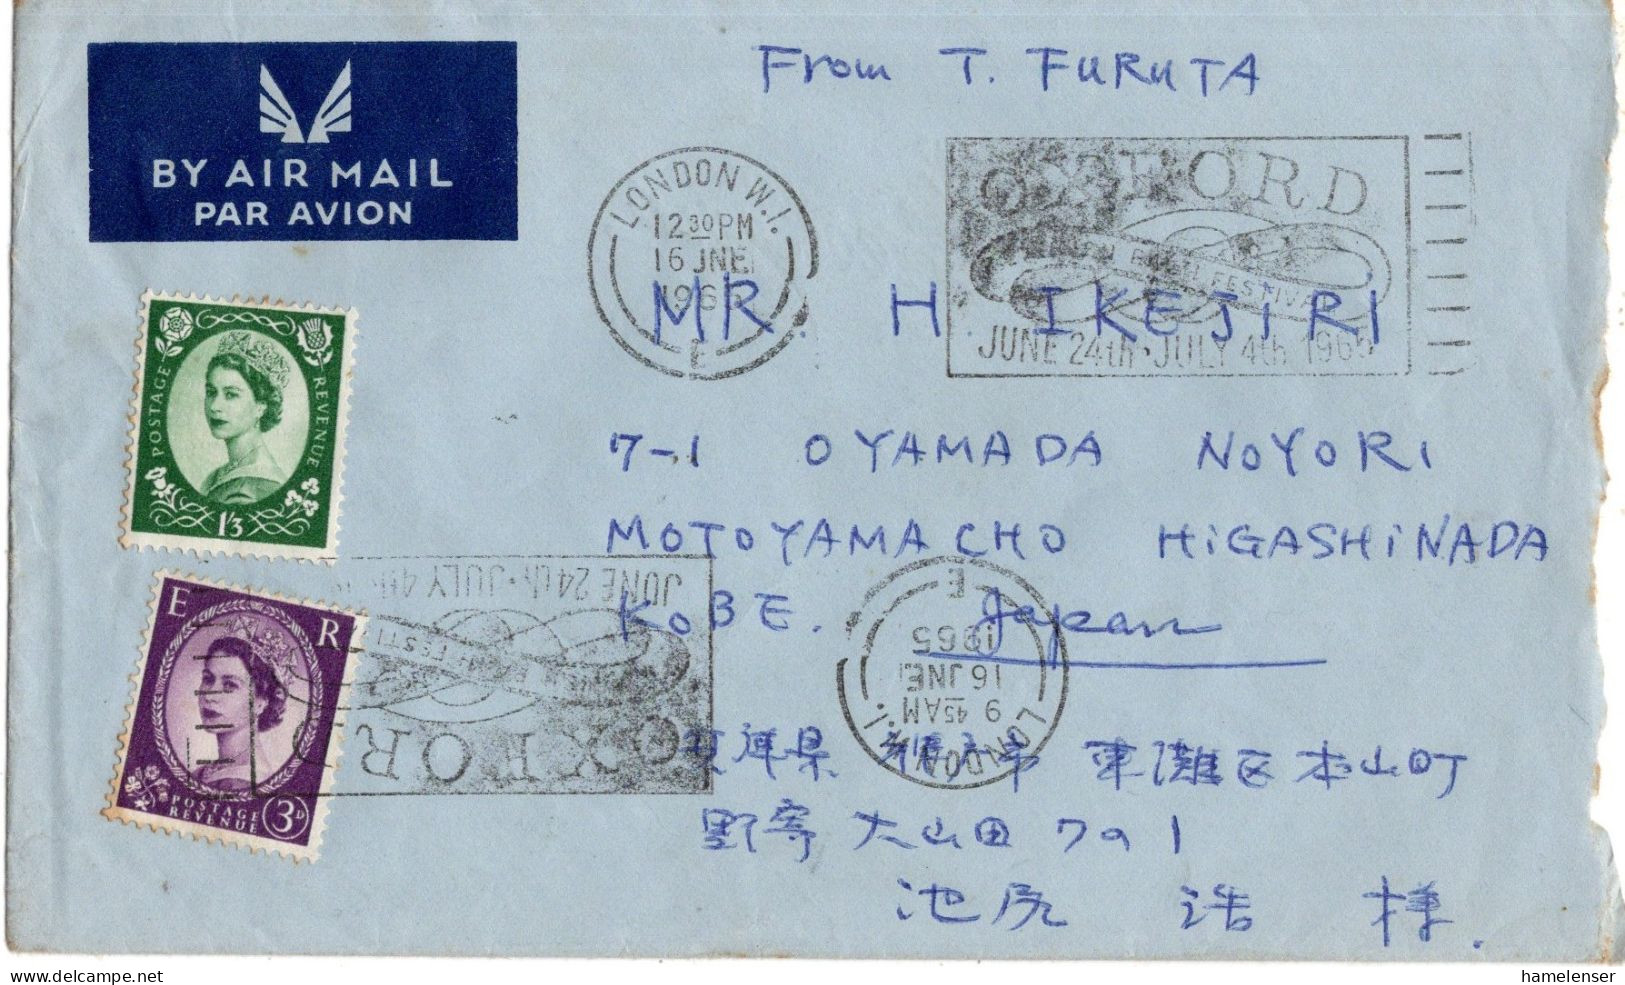 From T. FURUTA
BY AIR MAIL
PAR AVION
LONDON W.1.
12 30 PM
16 JNE
1965
E
OXFORD
BACH FESTIVAL
JUNE 24th · JULY 4th 1965
MR. H IKEJIRI
POSTAGE REVENUE
1/3
7-1 OYAMADA NOYORI
MOTOYAMACHO HiGASHiNADA
KOBE. Japan
JUNE 24th · JULY 4th
FESTI
OXFORD
LONDON W.1.
9 45 AM
16 JNE
1965
E
E R
POSTAGE REVENUE
3D
兵庫県 神戸市 東灘区本山町
野寄 大山田 7の1
池尻 浩 様.
hamelenser